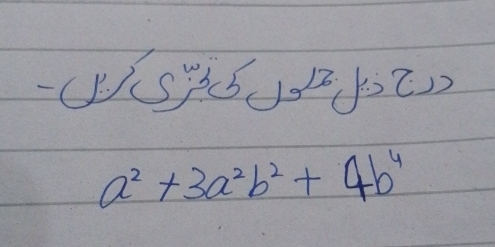 درج ذیل جملوں کی تجزّی کریں -
a² + 3a²b² + 4b⁴